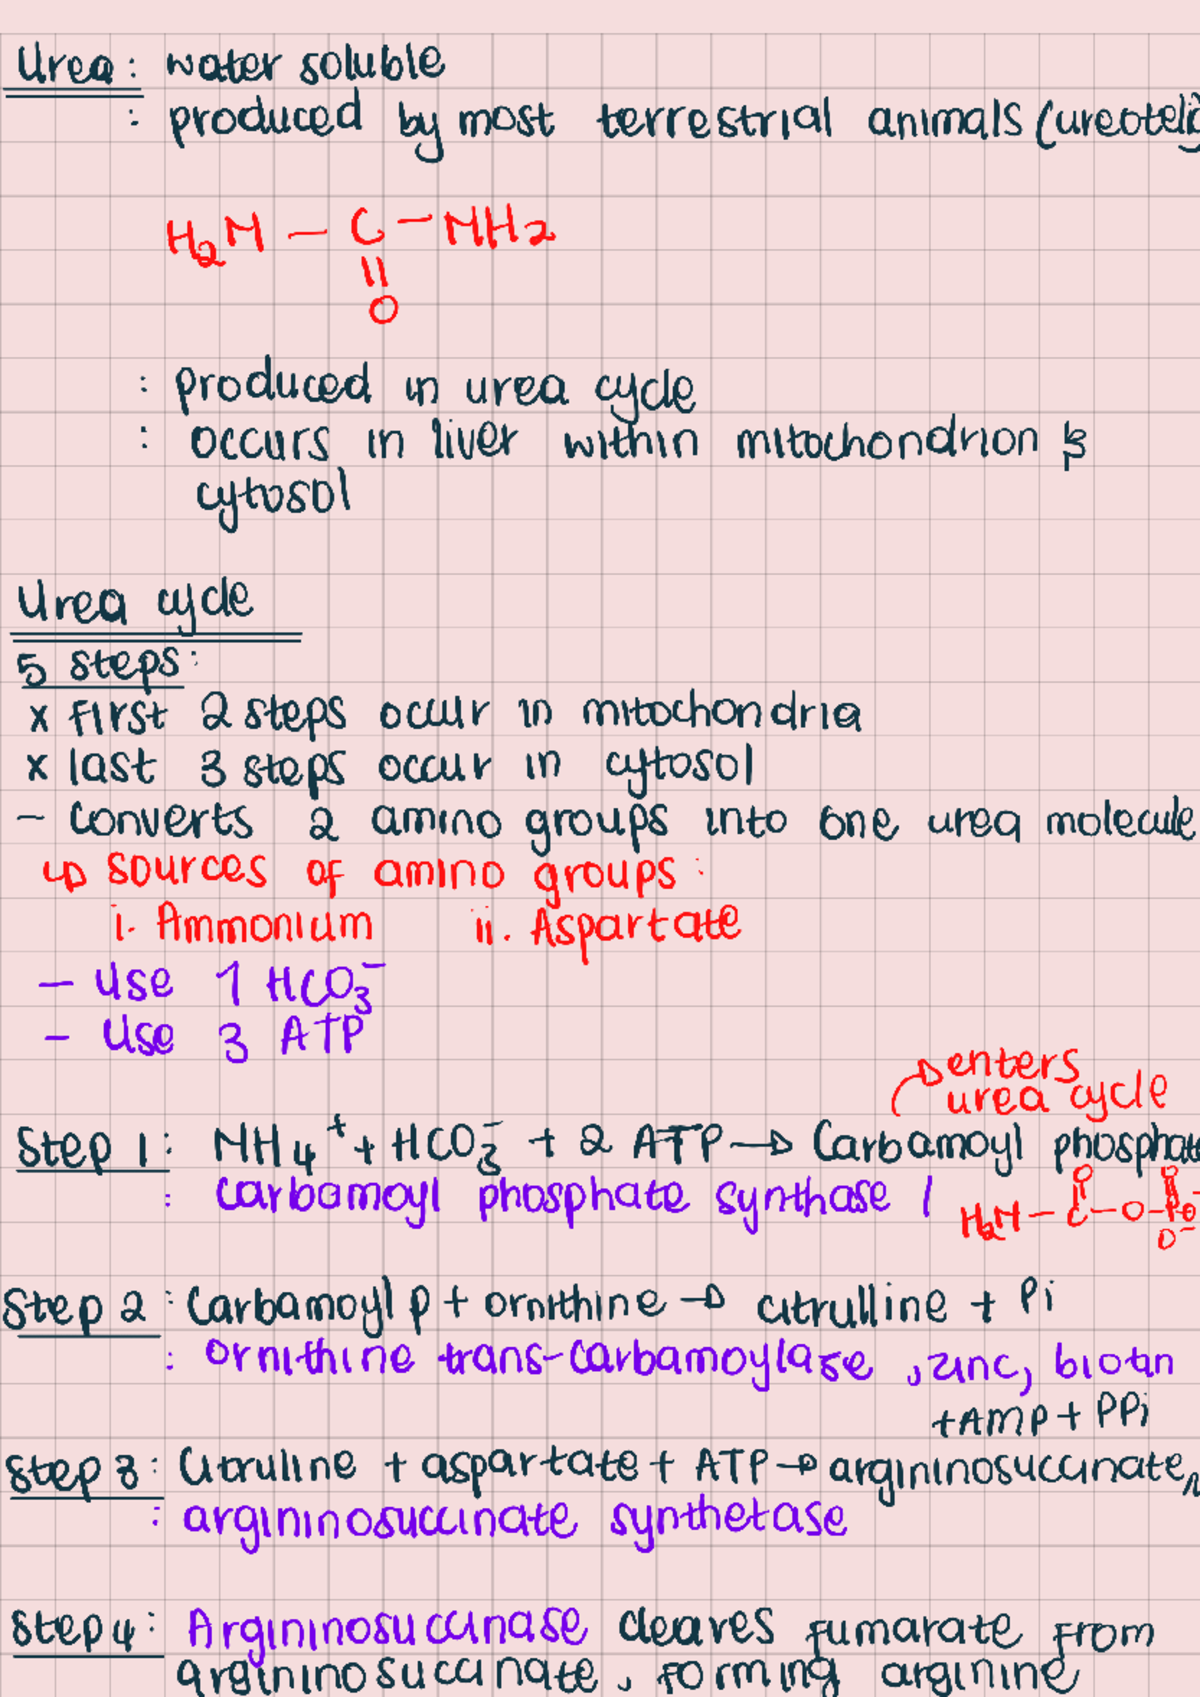 Urea: water soluble
: produced by most terrestrial animals (ureotelic
H₂N — C — NH₂
||
O
: produced in urea cycle
: occurs in liver within mitochondrion &
cytosol
Urea cycle
5 steps:
x first 2 steps occur in mitochondria
x last 3 steps occur in cytosol
- converts 2 amino groups into one urea molecule
↳ sources of amino groups:
i. Ammonium ii. Aspartate
- use 1 HCO₃⁻
- Use 3 ATP
→ enters
urea cycle
Step 1: NH₄⁺ + HCO₃⁻ + 2 ATP → Carbamoyl phosphate
: carbamoyl phosphate synthase 1
O O
H₂N — C — O — P O⁻
O⁻
Step 2: Carbamoyl p + ornithine → citrulline + Pi
: ornithine trans-carbamoylase, zinc, biotin
+ AMP + PPi
Step 3: Citruline + aspartate + ATP → argininosuccinate
: argininosuccinate synthetase
Step 4: Argininosuccinase cleaves fumarate from
argininosuccinate, forming arginine